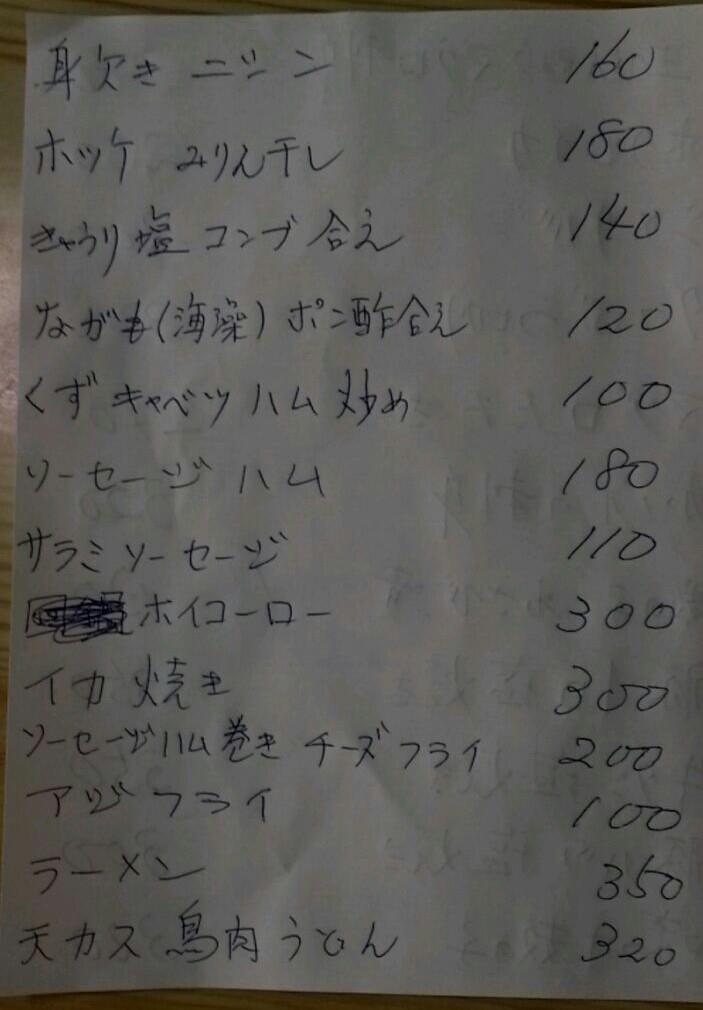 身欠きニシン 160
ホッケ みりん干し 180
きゅうり塩コンブ合え 140
ながも(海藻)ポン酢合え 120
くずキャベツハム炒め 100
ソーセージハム 180
サラミソーセージ 110
ホイコーロー 300
イカ焼き 300
ソーセージハム巻きチーズフライ 200
アジフライ 100
ラーメン 350
天カス鳥肉うどん 320